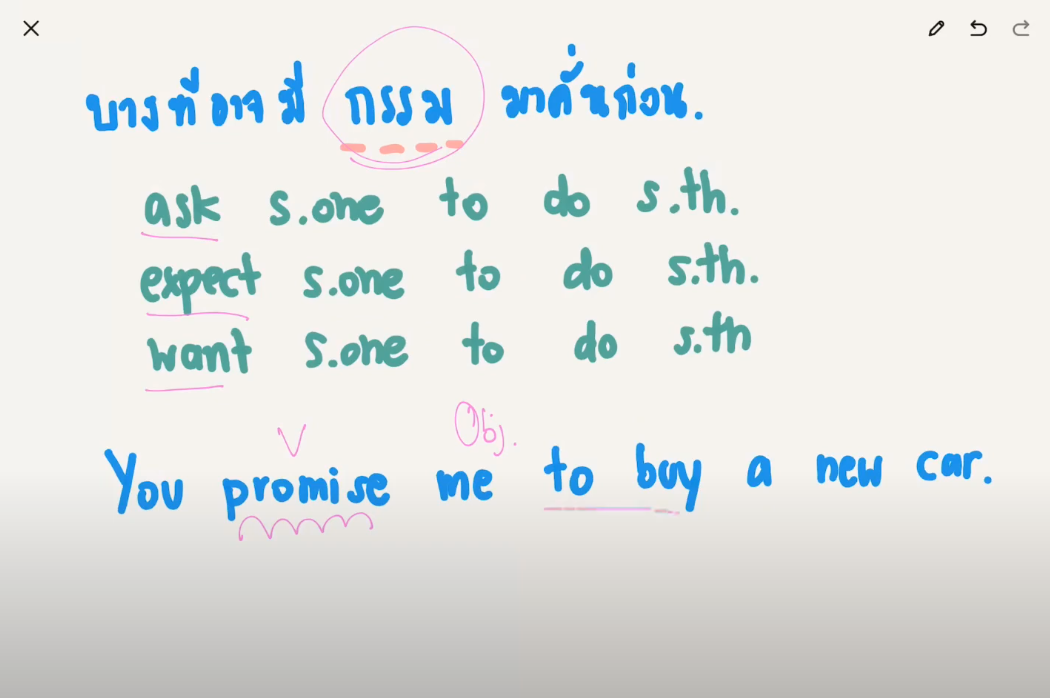 บางทีอาจมี กรรม มาคั่นก่อน.
ask s.one to do s.th.
expect s.one to do s.th.
want s.one to do s.th
V Obj.
You promise me to buy a new car.